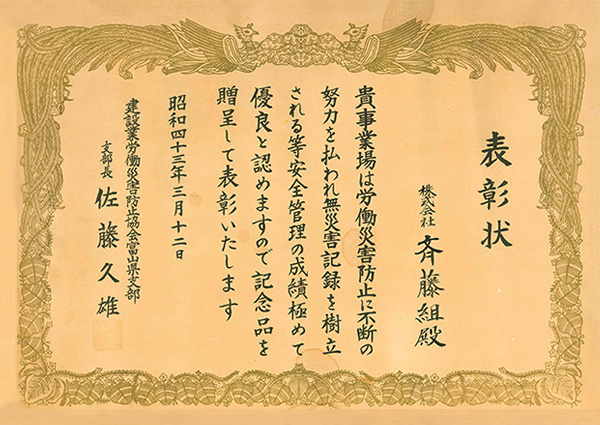 表彰状
株式会社 斉藤組殿
貴事業場は労働災害防止に不断の
努力を払われ無災害記録を樹立
される等安全管理の成績極めて
優良と認めますので記念品を
贈呈して表彰いたします
昭和四十三年三月十二日
建設業労働災害防止協会富山県支部
支部長 佐藤久雄